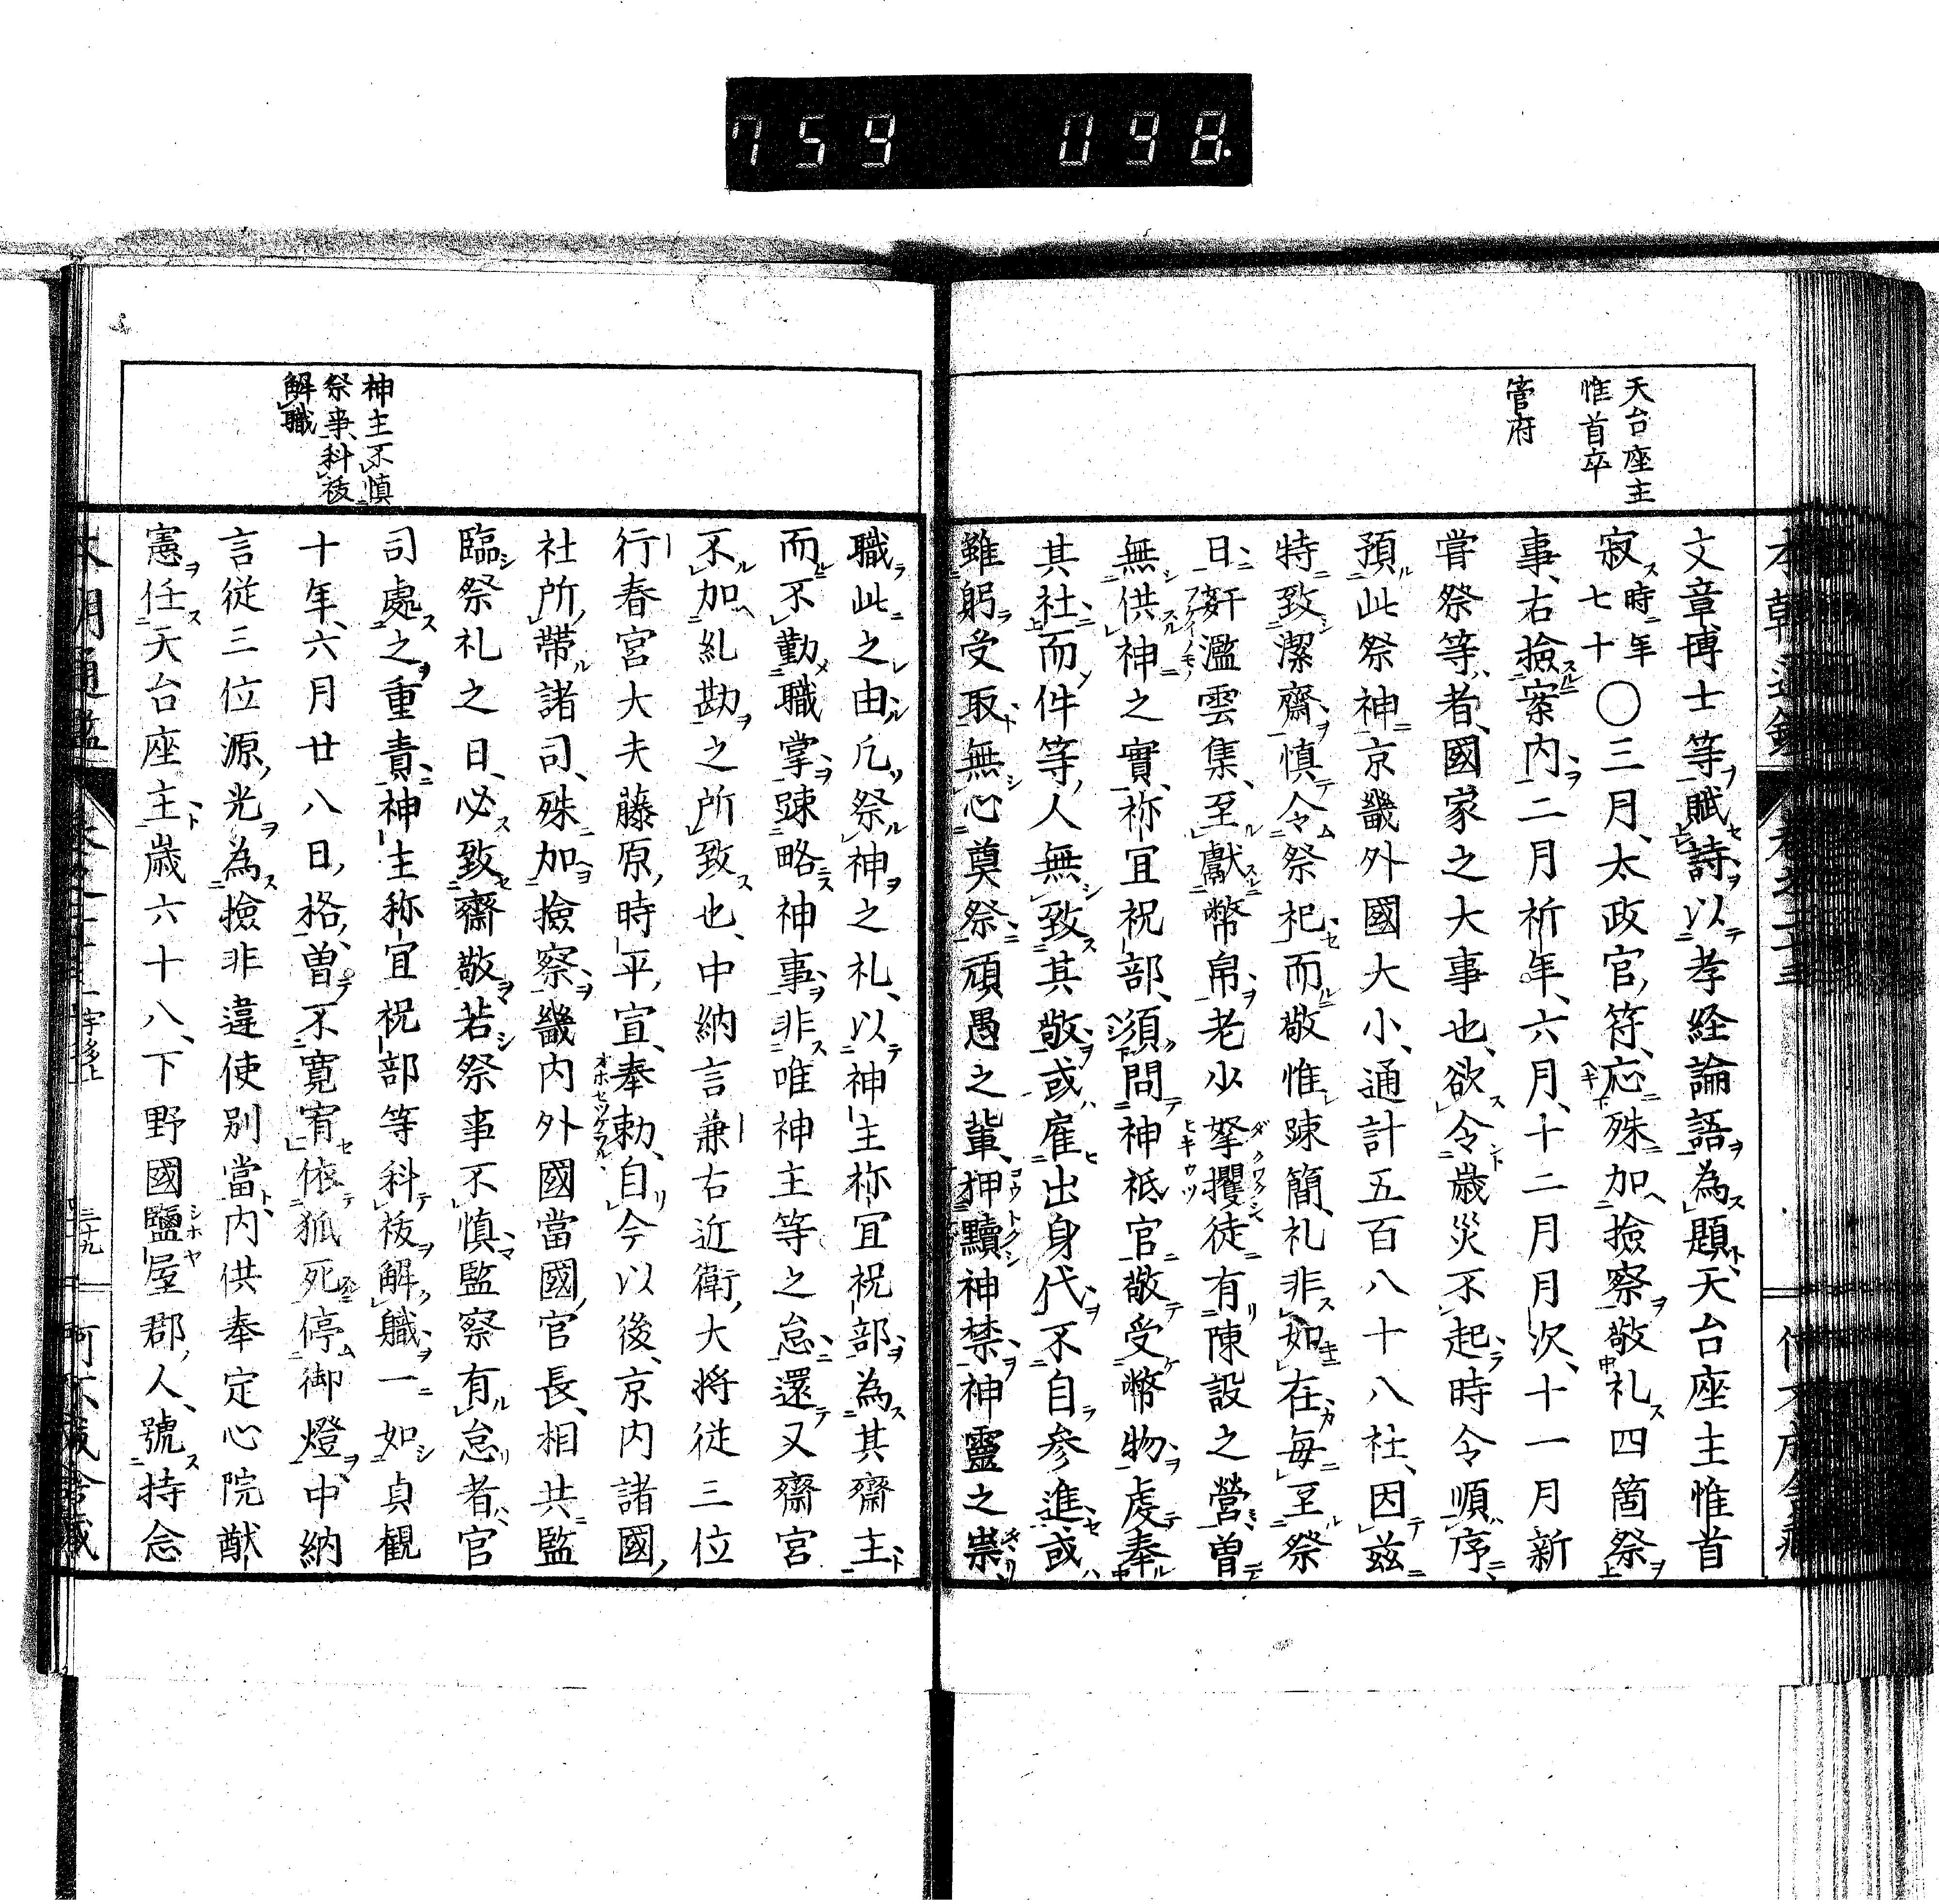 759 098.
天台座主
惟首卒
管府
文章博士等賦詩以孝経論語為題天台座主惟首
寂時年七十〇三月太政官符応殊加撿察敬礼四箇祭
事右撿案内二月祈年六月十二月月次十一月新
嘗祭等者國家之大事也欲令歳災不起時令順序
預此祭神京畿外國大小通計五百八十八社因茲
特致潔齋慎令祭祀而敬惟踈簡礼非如在毎至祭
日奸濫雲集至獻幣帛老少拏攫徒有陳設之營曽
無供神之實祢宜祝部須問神祇官敬受幣物虔奉
其社而件等人無致其敬或雇出身代不自参進或
雖躬受取無心奠祭頑愚之輩狎黷神禁神靈之祟
職此之由凡祭神之礼以神主祢宜祝部為其齋主
而不勤職掌踈略神事非唯神主等之怠還又齋宮
不加糺勘之所致也中納言兼右近衛大将従三位
行春宮大夫藤原時平宣奉勅自今以後京内諸國
社所帶諸司殊加撿察畿内外國當國官長相共監
臨祭礼之日必致齋敬若祭事不慎監察有怠者官
司處之重責神主称宜祝部等科祓解職一如貞観
十年六月廿八日格曽不寛宥依狐死停御燈中納
言従三位源光為撿非違使別當内供奉定心院猷
憲任天台座主歳六十八下野國鹽屋郡人號持念
神主不慎
祭事科祓
解職